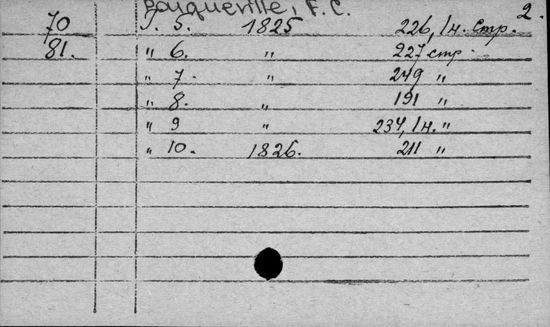 Pouqueville, F. C.
2.
70 T. 5. 1825 226, 1н. стр.
81. " 6. " 227 стр.
" 7. " 249 "
" 8. " 191 "
" 9 " 234, 1н. "
" 10. 1826. 211 "